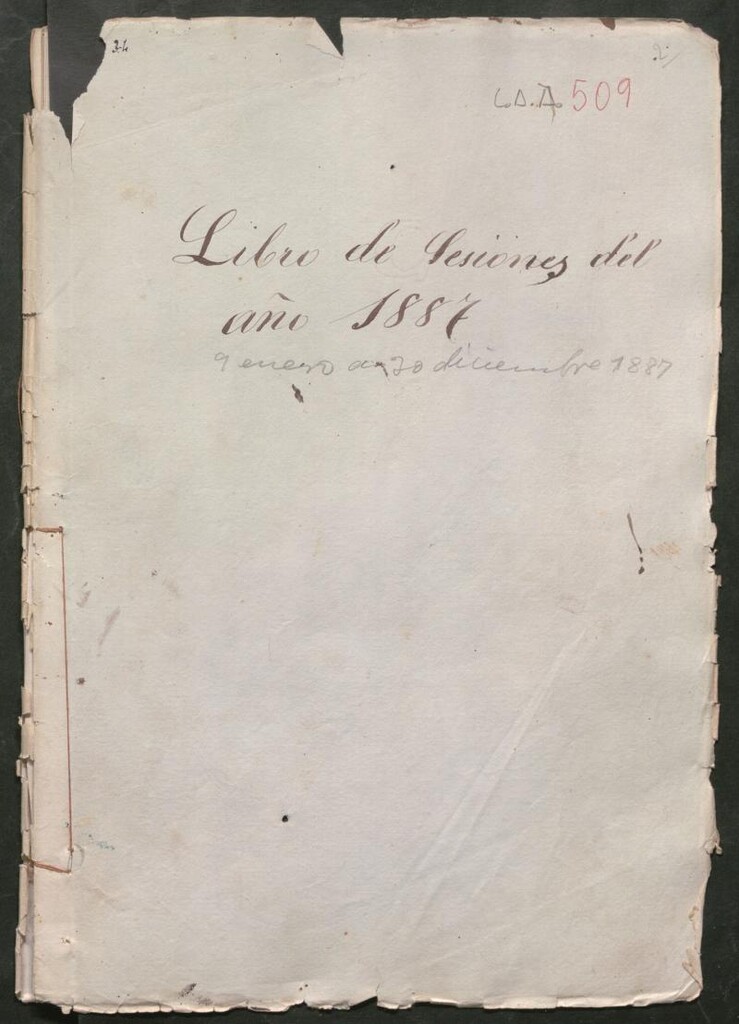 34
2
L.A.A. 509
Libro de Sesiones del
año 1887
9 enero a 30 diciembre 1887